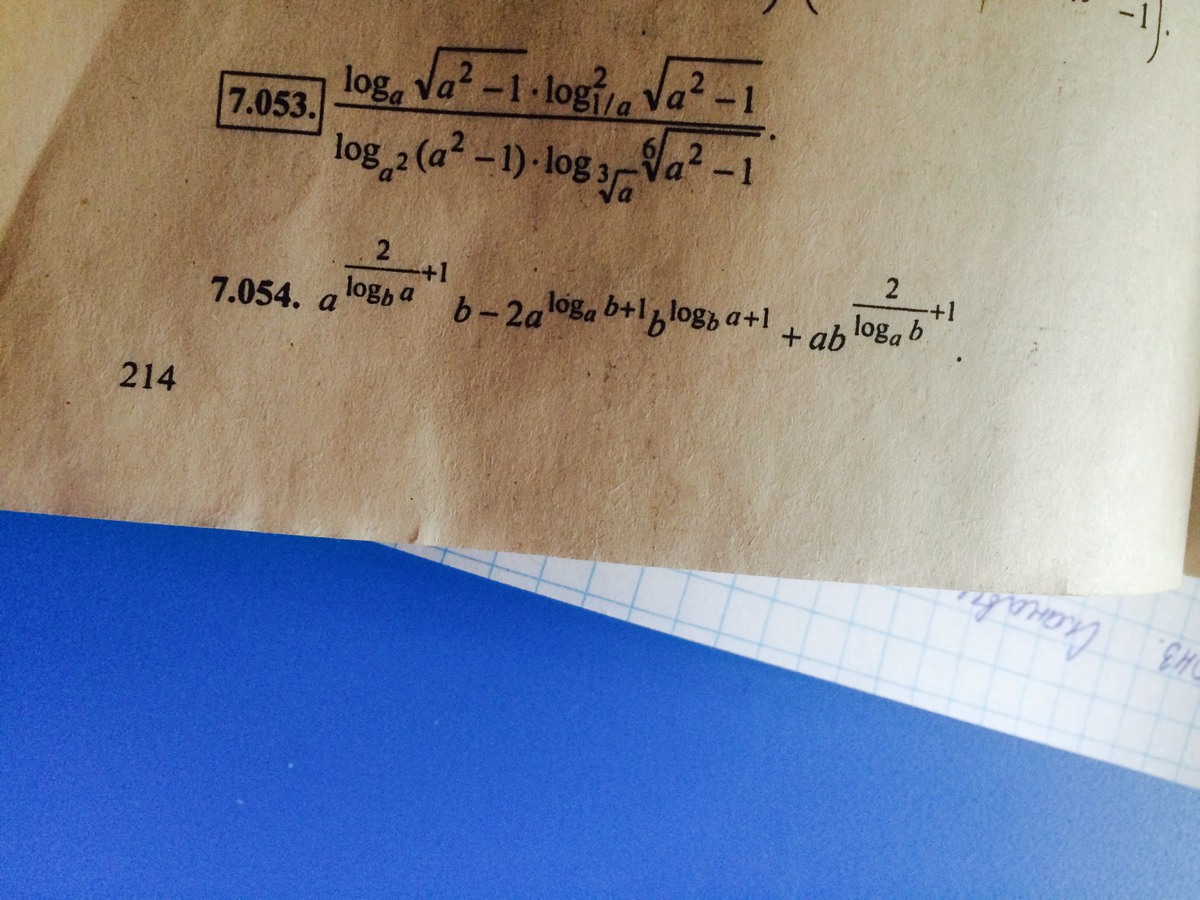 -1).
7.053. \frac{\log_a \sqrt{a^2-1} \cdot \log_{1/a}^2 \sqrt{a^2-1}}{\log_{a^2}(a^2-1) \cdot \log_{\sqrt[3]{a}} \sqrt[6]{a^2-1}}.
7.054. a^{\frac{2}{\log_b a}+1} b - 2a^{\log_a b+1} b^{\log_b a+1} + ab^{\frac{2}{\log_a b}+1}.
214